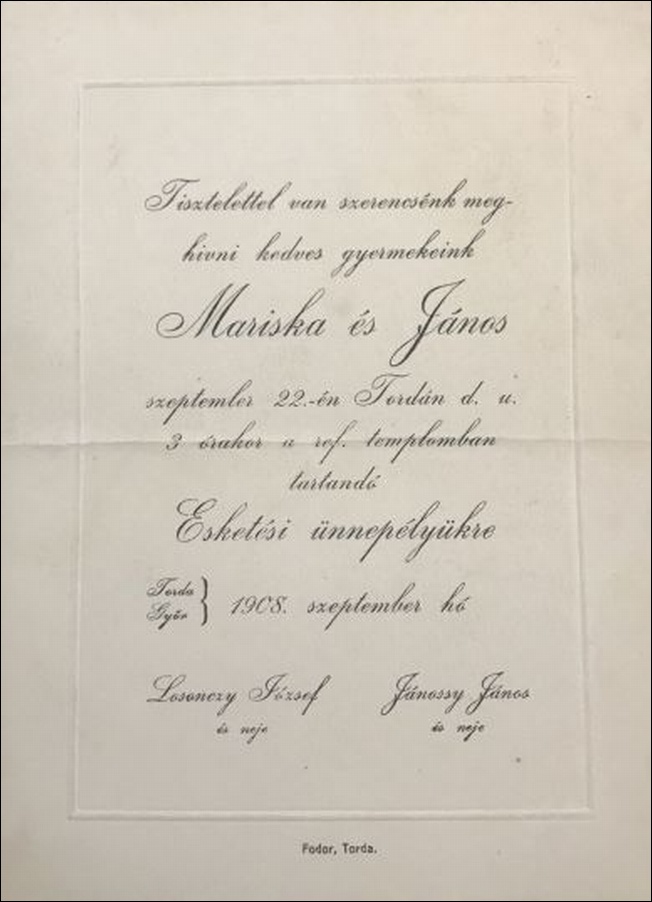 Tisztelettel van szerencsénk meg-
hivni kedves gyermekeink
Mariska és János
szeptember 22.-én Tordán d. u.
3 órakor a ref. templomban
tartandó
Esketési ünnepélyükre
Torda
Győr } 1908. szeptember hó
Losonczy József
és neje
Jánossy János
és neje
Fodor, Torda.